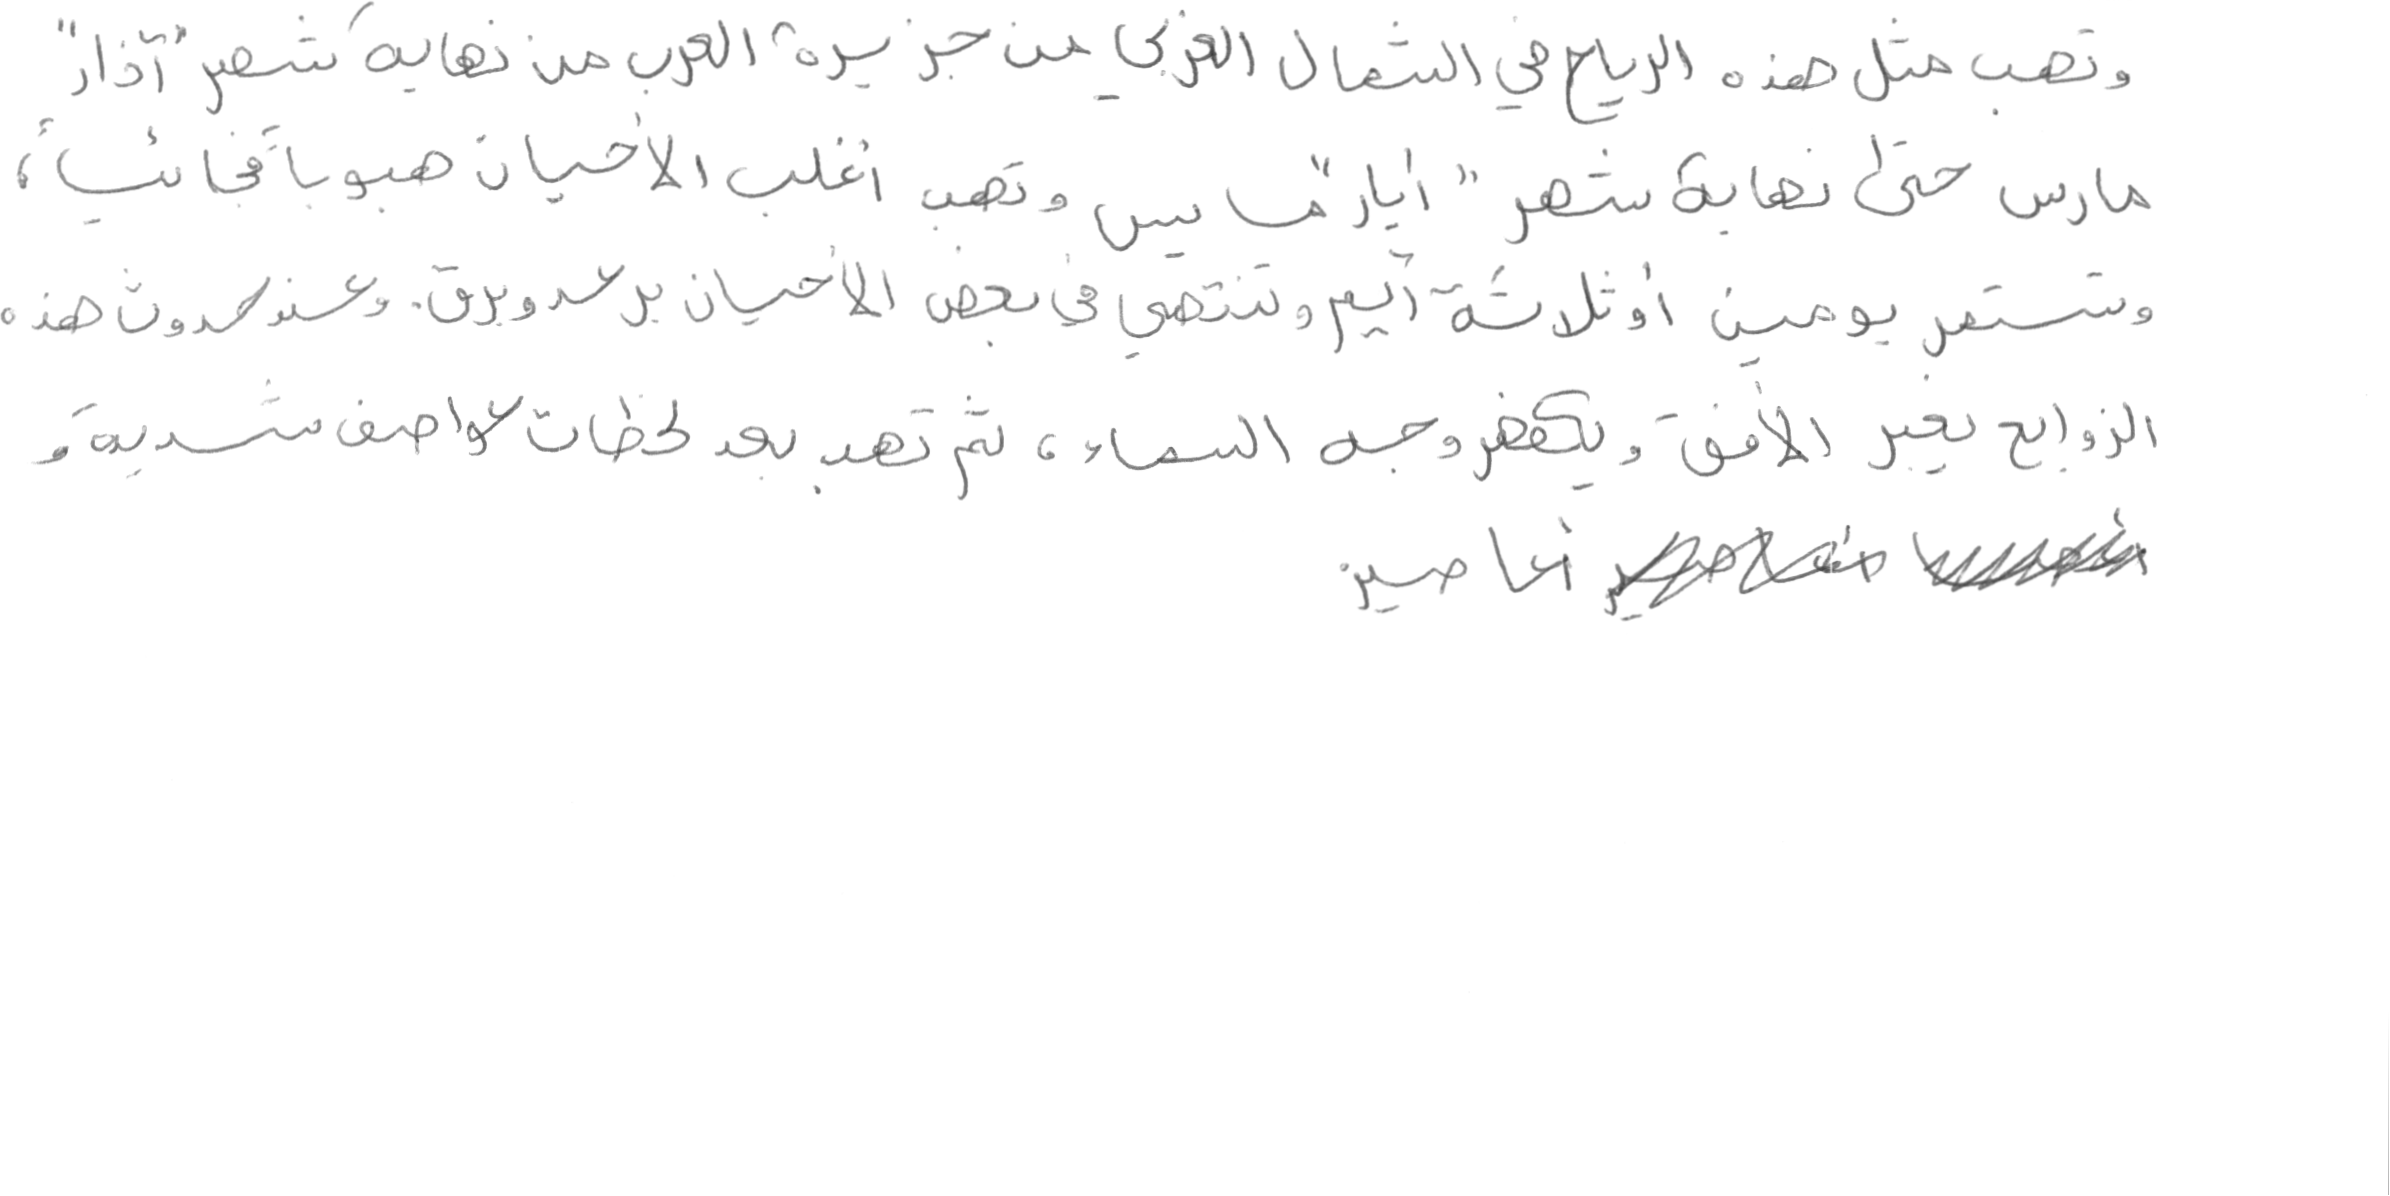 وتهب مثل هذه الرياح في الشمال الغربي من جزيرة العرب من نهاية شهر "آذار"
مارس حتى نهاية شهر "أيار" مايس وتهب أغلب الأحيان هبوباً فجائياً،
وتستمر يومين أو ثلاثة أيام وتنتهي في بعض الأحيان برعد وبرق. وعند حدوث هذه
الزوابع يغبر الأفق ويكفهر وجه السماء، ثم تهب بعد لحظات عواصف شديدة و
أعاصير